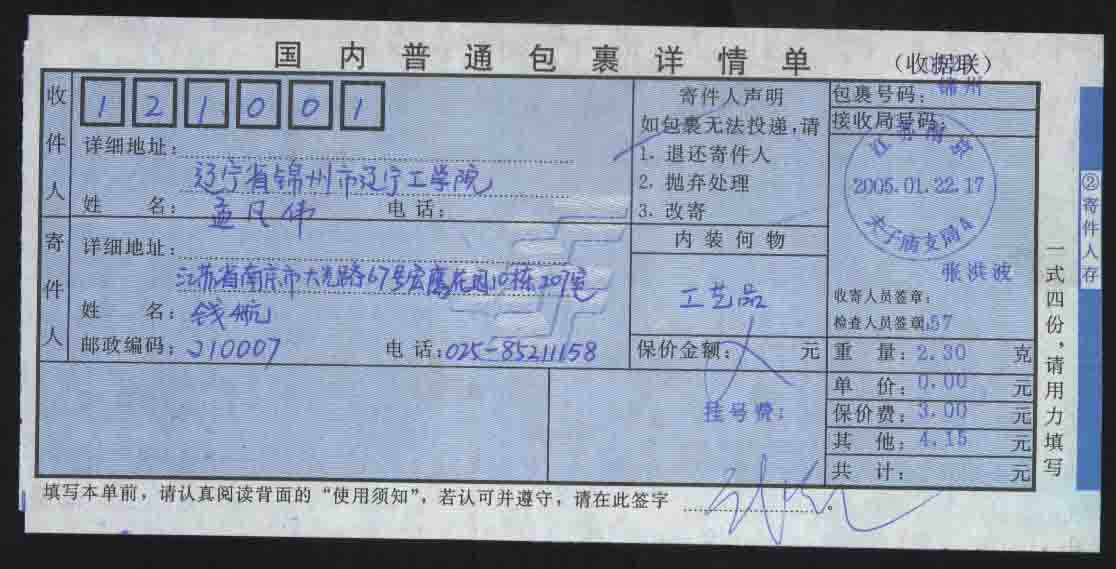 国内普通包裹详情单
(收据联)
收件人
121001
详细地址:
辽宁省锦州市辽宁工学院
姓 名: 孟凡伟 电话:
寄件人
详细地址:
江苏省南京市大光路67号宏鹰花园10栋207室
姓 名: 钱航
邮政编码: 210007 电话: 025-85211158
寄件人声明
如包裹无法投递,请
1. 退还寄件人
2. 抛弃处理
3. 改寄
内装何物
工艺品
保价金额: 元
挂号费:
包裹号码: 锦州
接收局号码:
江苏南京
2005.01.22.17
夫子庙支局4
张洪波
收寄人员签章:
检查人员签章: 57
重 量: 2.30 克
单 价: 0.00 元
保价费: 3.00 元
其 他: 4.15 元
共 计: 元
填写本单前,请认真阅读背面的“使用须知”,若认可并遵守,请在此签字 。
一式四份,请用力填写
②寄件人存